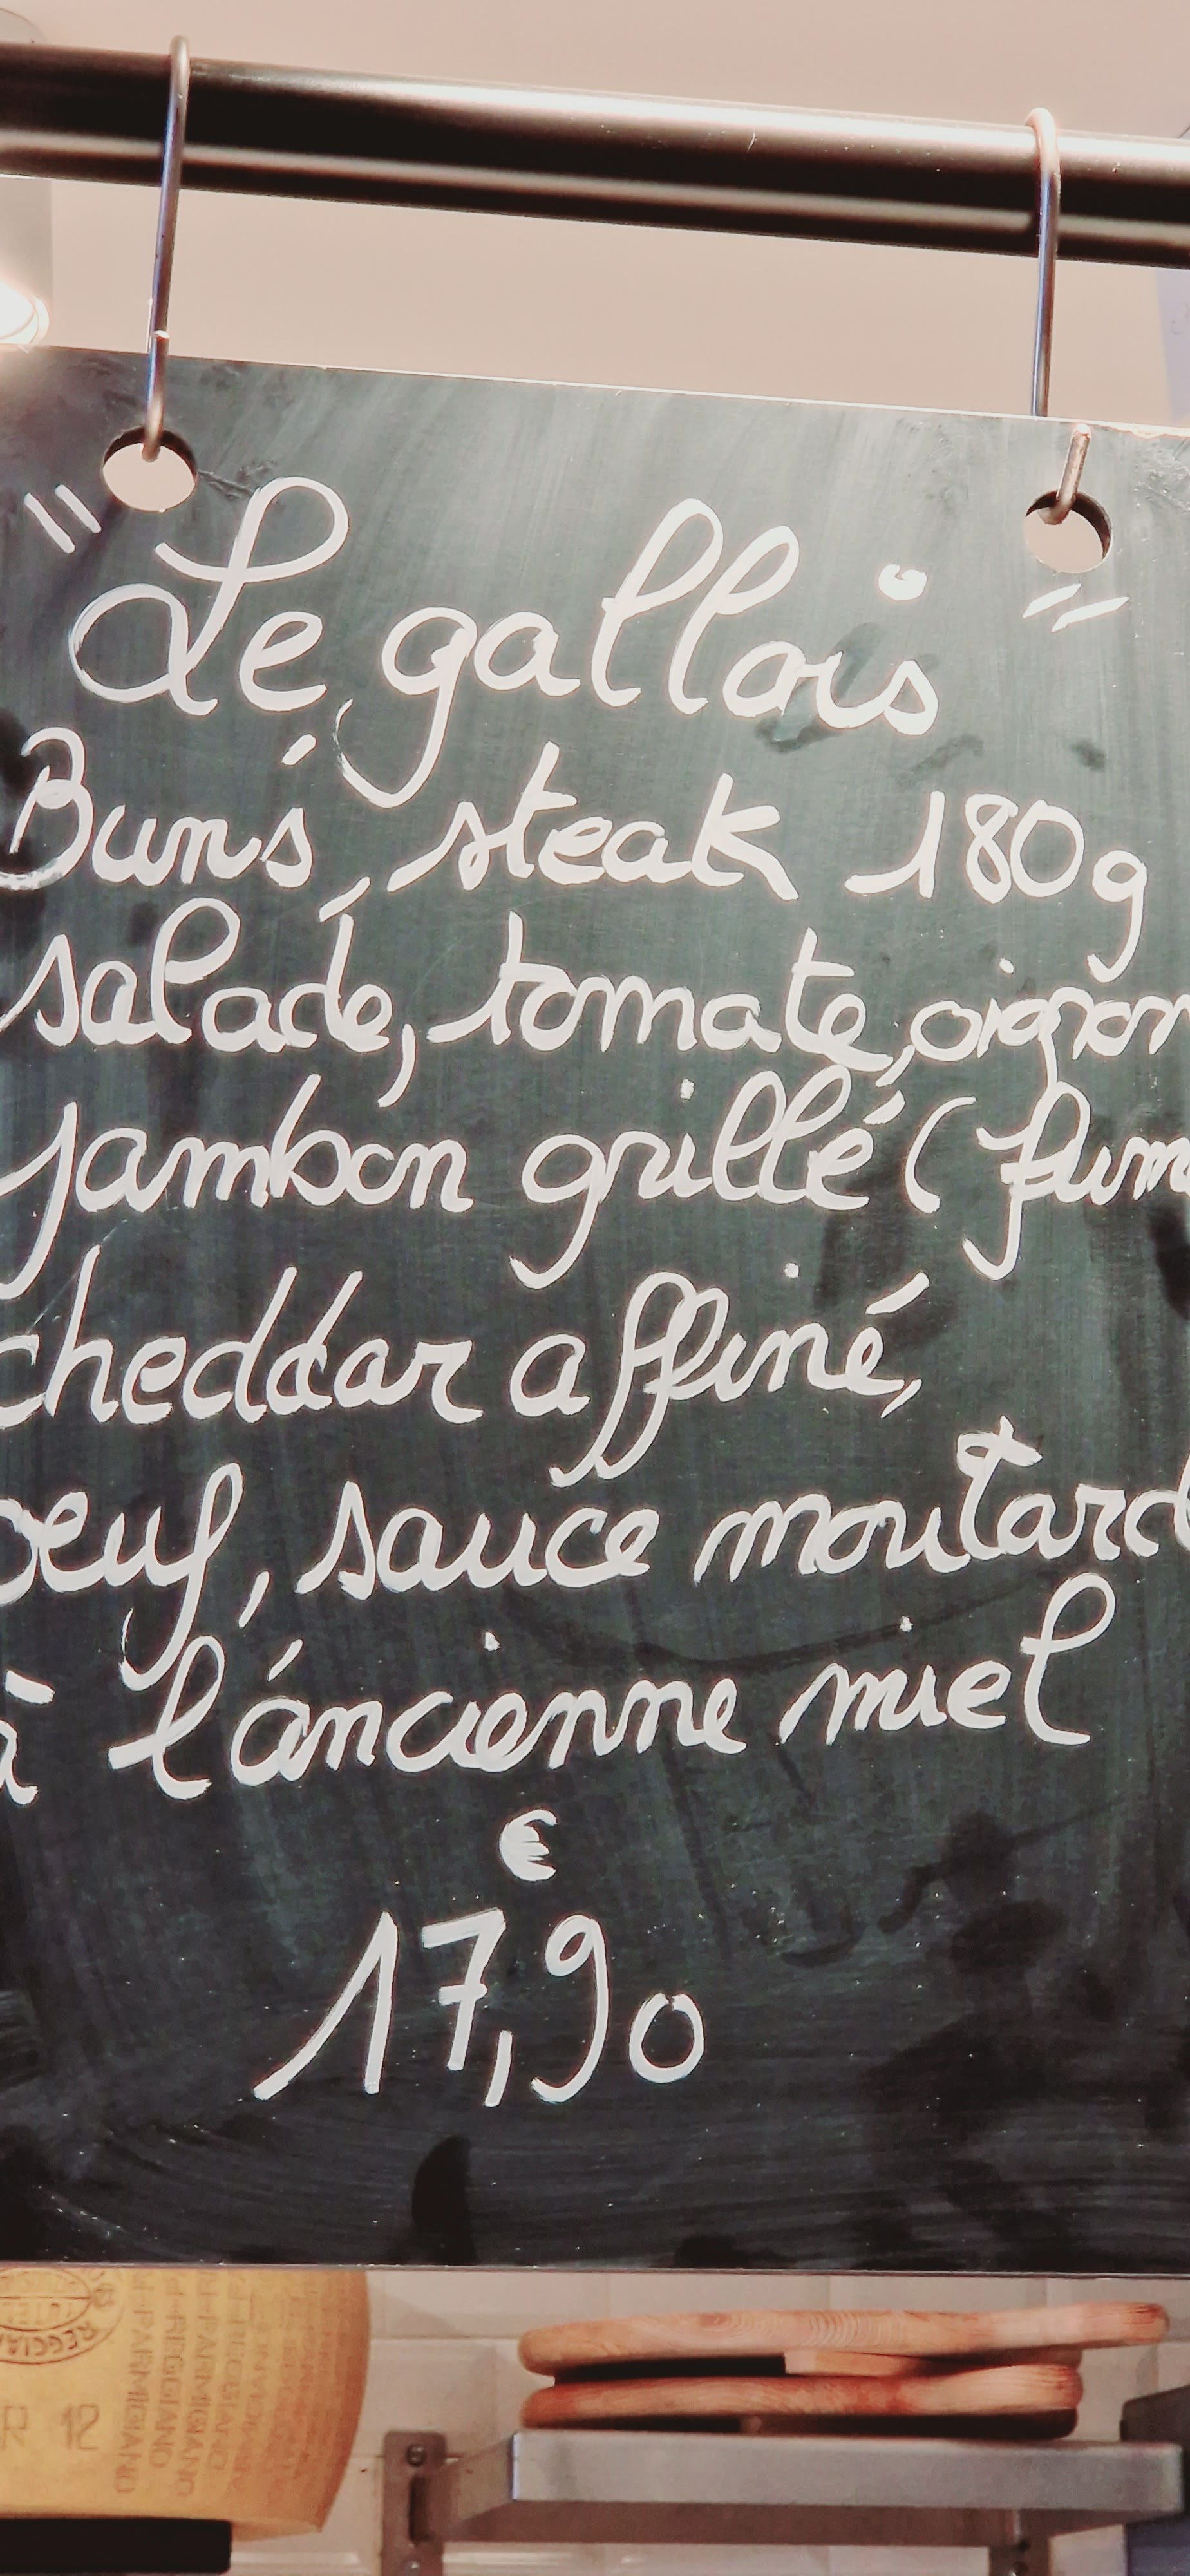 "Le gallois"
Bun's, steak 180g
salade, tomate, oignon
jambon grillé (fum
cheddar affiné,
oeuf, sauce moutard
à l'ancienne miel
€
17,90
REGGIANO
PARMIGIANO
R 12